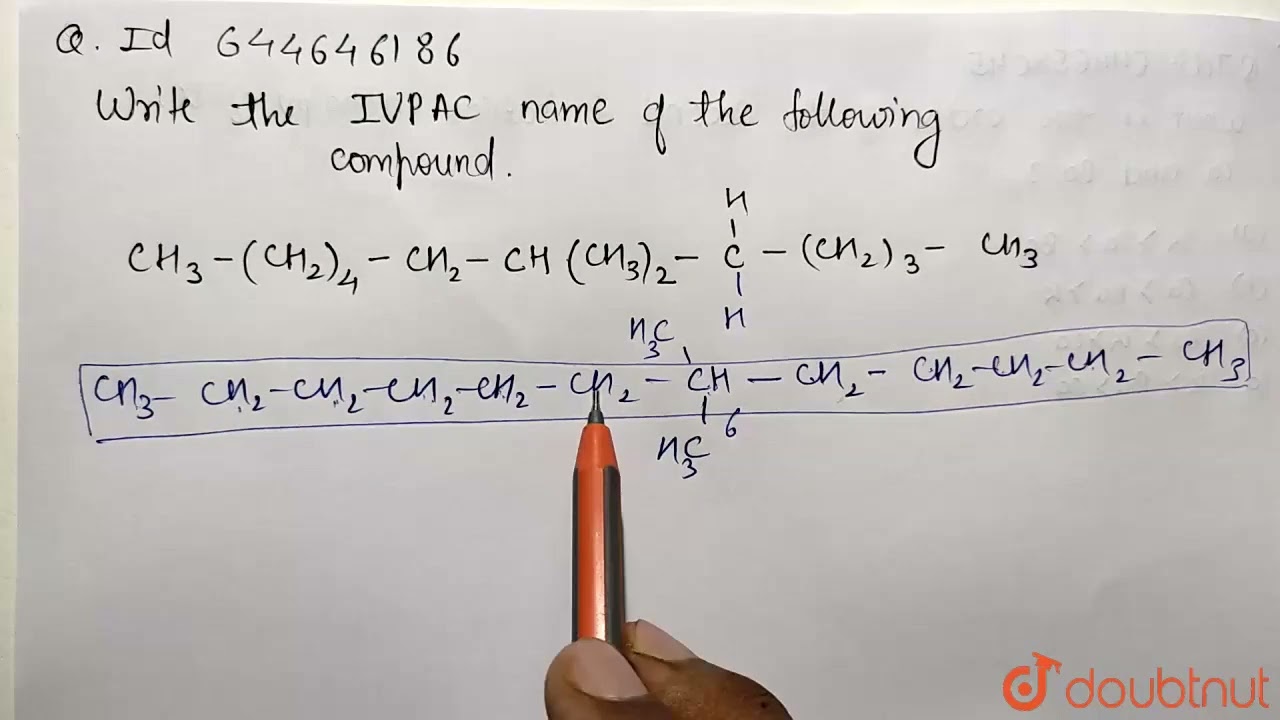 Q. Id 644646186
Write the IUPAC name of the following
compound.
H
CH3-(CH2)4-CH2-CH(CH3)2-C-(CH2)3-CH3
H
H3C
CH3-CH2-CH2-CH2-CH2-CH2-CH-CH2-CH2-CH2-CH2-CH3
6
H3C
doubtnut